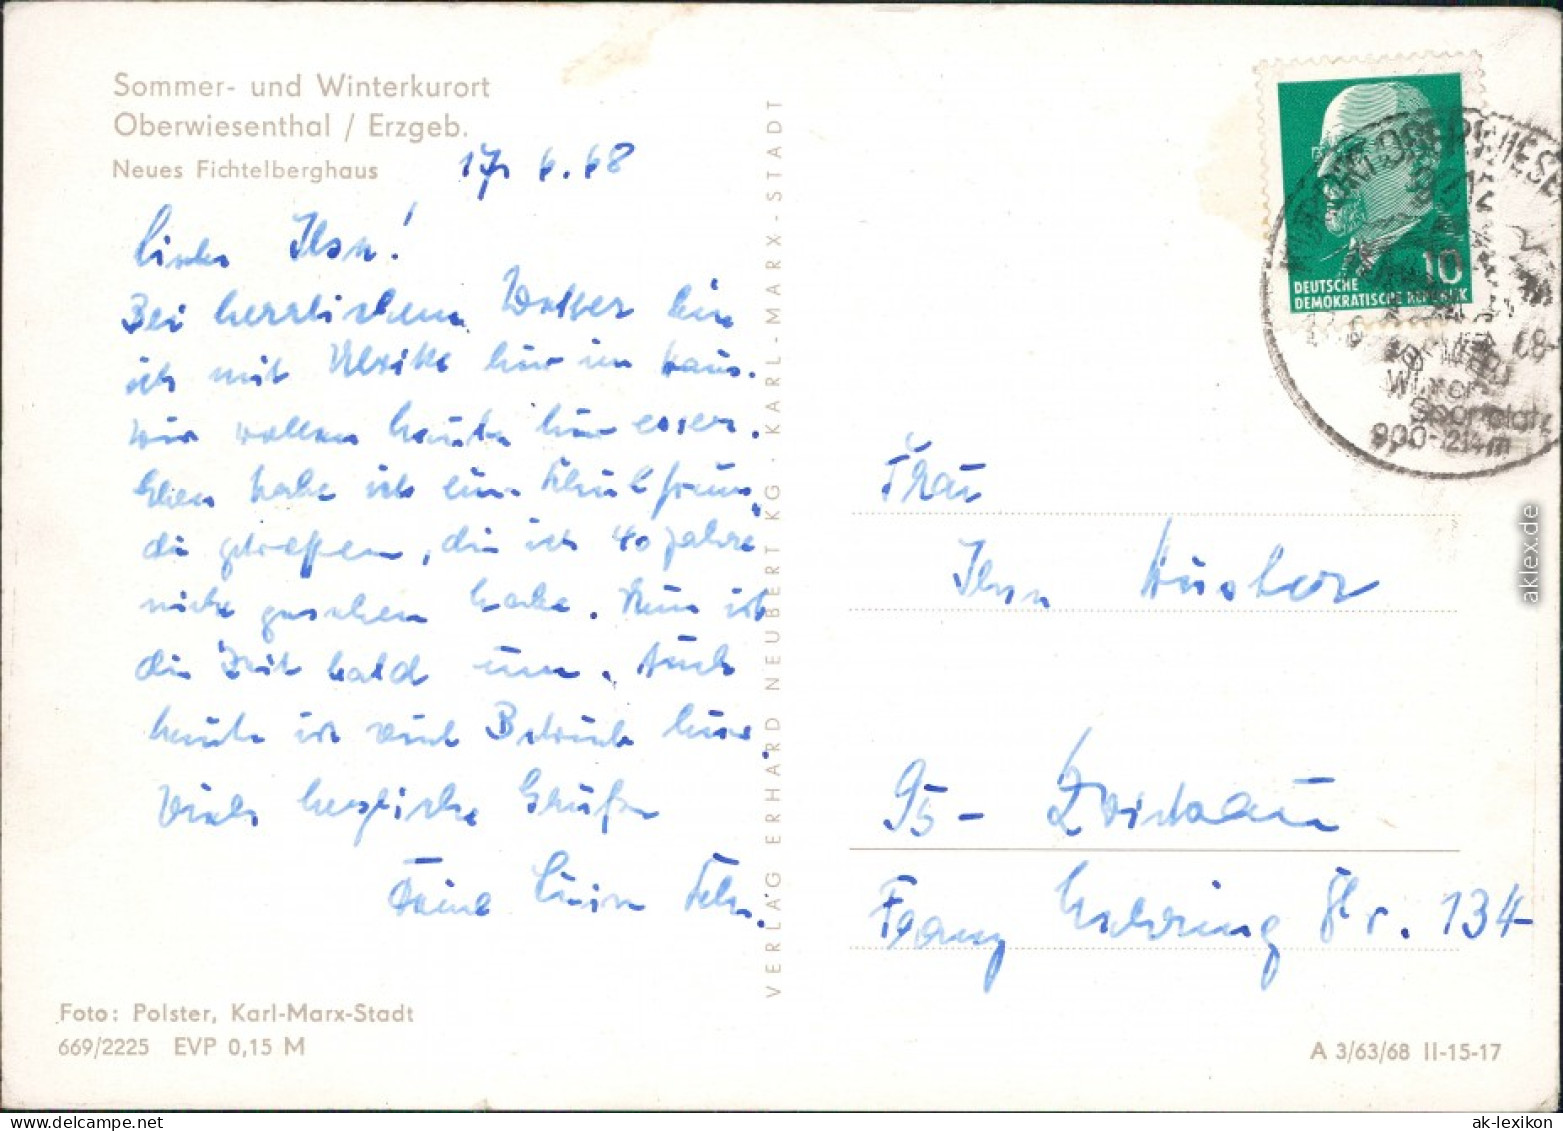 Sommer- und Winterkurort
Oberwiesenthal / Erzgeb.
Neues Fichtelberghaus
17. 6. 68
Liebe Ilse!
Bei herrlichem Wetter bin
ich mit Ulrike hier im Haus.
Wir wollen heute hier essen.
Eben habe ich eine Schulfreun-
din getroffen, die ich 40 Jahre
nicht gesehen habe. Nun ist
die Zeit bald um. Auch
heute ist viel Betrieb hier.
Viele herzliche Grüße
Deine
Foto: Polster, Karl-Marx-Stadt
669/2225 EVP 0,15 M
VERLAG ERHARD NEUBERT KG · KARL-MARX-STADT
10
DEUTSCHE
DEMOKRATISCHE REPUBLIK
KURORT OBERWIESEN
Winter
Sportplatz
900-1214m
Frau
Ilse
95- Zwickau
Franz Mehring Str. 134
A 3/63/68 II-15-17
aklex.de
ak-lexikon